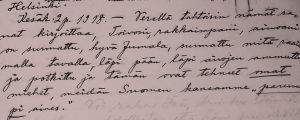 Helsinki.
Kesäk. 2 p. 1918. — Verellä tahtoisin nämät sa-
nat kirjoittaa, Toivoni, rakkaimpani, ainoani
on surmattu, hyvä Jumala, surmattu mitä raa'
malla tavalla, läpi pään, läpi aivojen ammuttu
ja potkittu ja tämän ovat tehneet omat
miehet, meidän Suomen kansamme, "parem
pi aines."